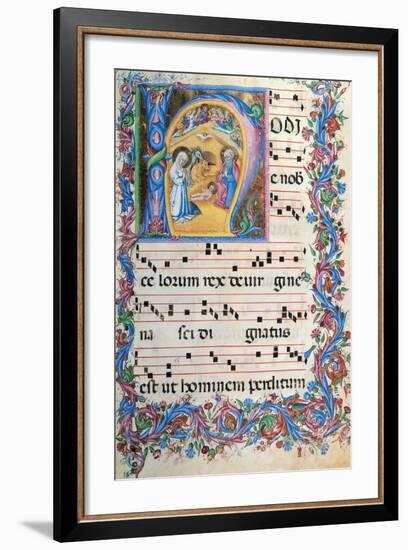 H
ODI
e nob
ce lorum rex de vir gine
na sci di gnatus
est ut hominem perditum